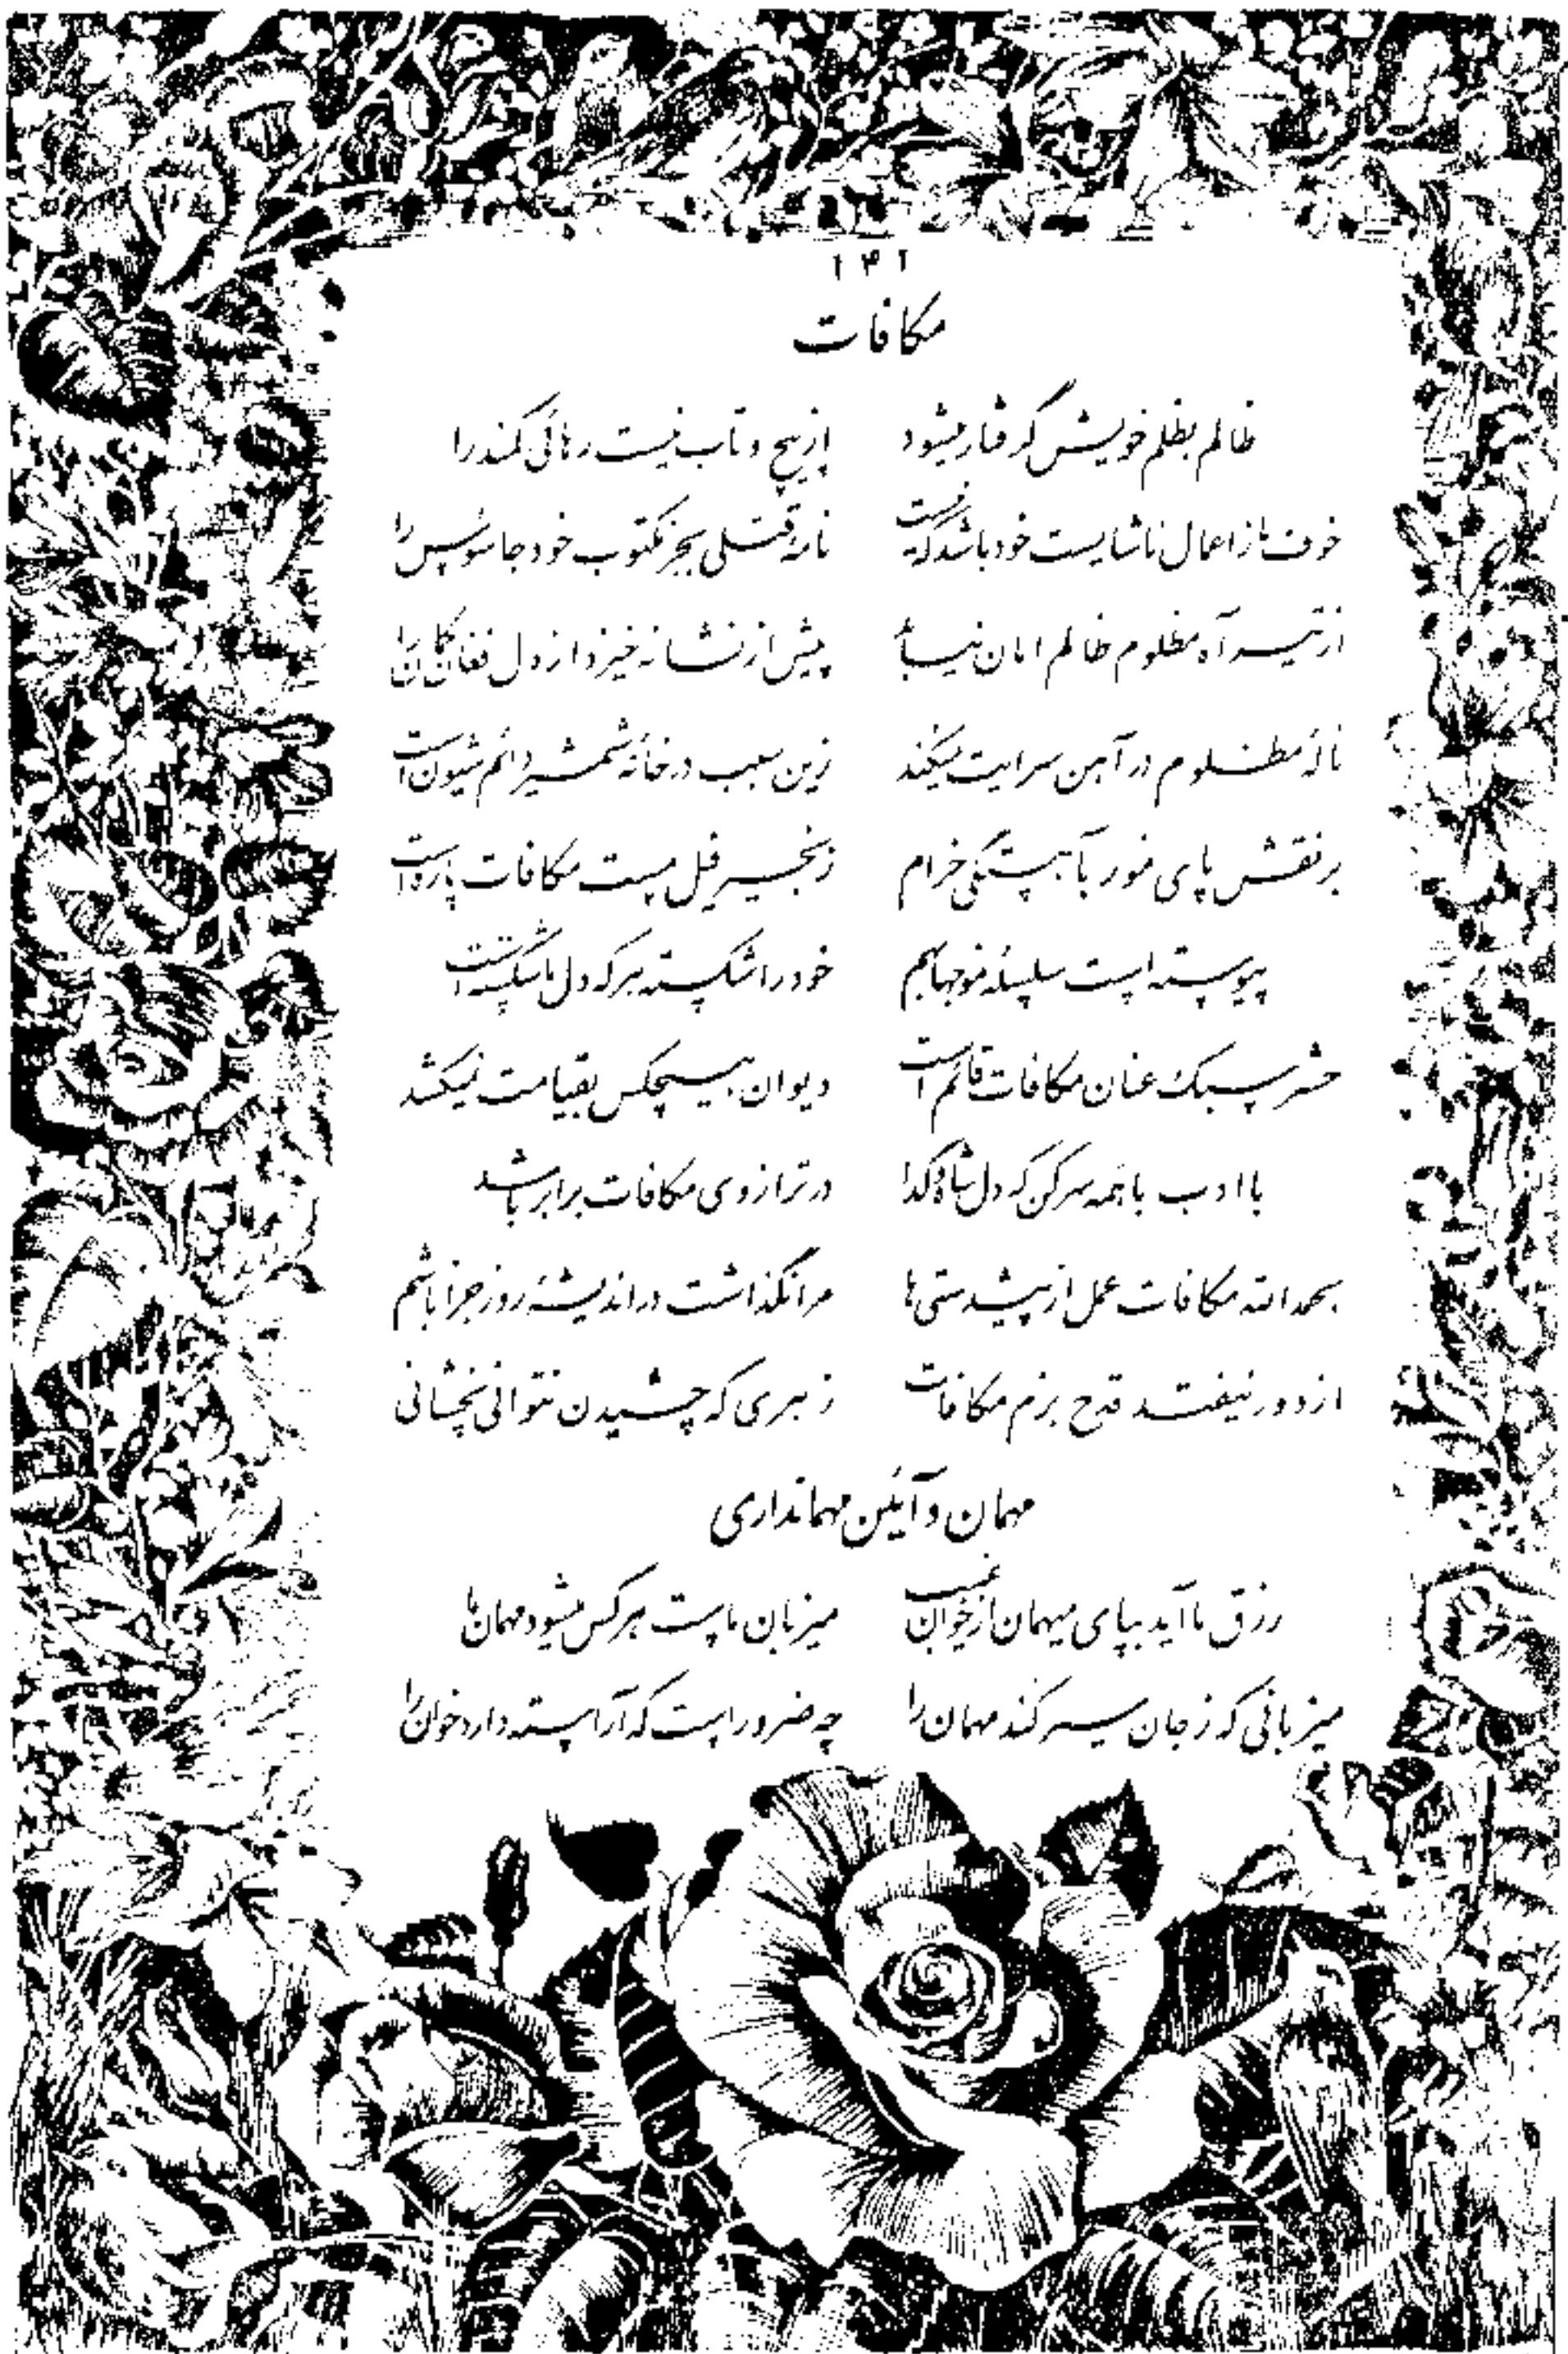 ۱۴۲
مکافات
ظالم بظلم خویش گرفتار میشود    از پیچ و تاب نیست رهائی کمند را
خوف ما از اعمال ناشایست خود باشد که نیست    نامهٔ قتلی بجز مکتوب خود جاسوس را
از تیر آه مظلوم ظالم امان نیابد    پیش از نشانه خیزد از دل فغان کمان را
نالهٔ مظلوم در آهن سرایت میکند    زین سبب در خانهٔ شمشیر دائم شیون است
بر نقش پای مور بآهستگی خرام    زنجیر فیل مست مکافات پاره است
پیوسته است سلسلهٔ موجها بهم    خود را شکسته هر که دل ما شکسته است
حشر سبک عنان مکافات قائم است    دیوان هیچکس بقیامت نمیکشد
با ادب با همه سر کن که دل شاه و گدا    در ترازوی مکافات برابر باشد
بحمدالله مکافات عمل از پیشدستی ها    مرا نگذاشت در اندیشهٔ روز جزا باشم
از دور نیفتد قدح بزم مکافات    زهری که چشیدن نتوانی نچشانی
مهمان و آئین مهمانداری
رزق ما آید بپای میهمان از خوان غیب    میزبان ماست هر کس میشود مهمان ما
میزبانی که ز جان سیر کند مهمان را    چه ضرور است که آراسته دارد خوان را